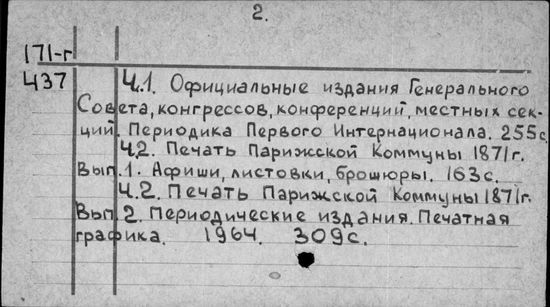 2.
171-г
437 Ч.1. Официальные издания Генерального
Совета, конгрессов, конференций, местных сек-
ций. Периодика Первого Интернационала. 255с.
Ч.2. Печать Парижской Коммуны 1871г.
Вып.1. Афиши, листовки, брошюры. 163с.
Ч.2. Печать Парижской Коммуны 1871г.
Вып.2. Периодические издания. Печатная
графика. 1964. 309с.